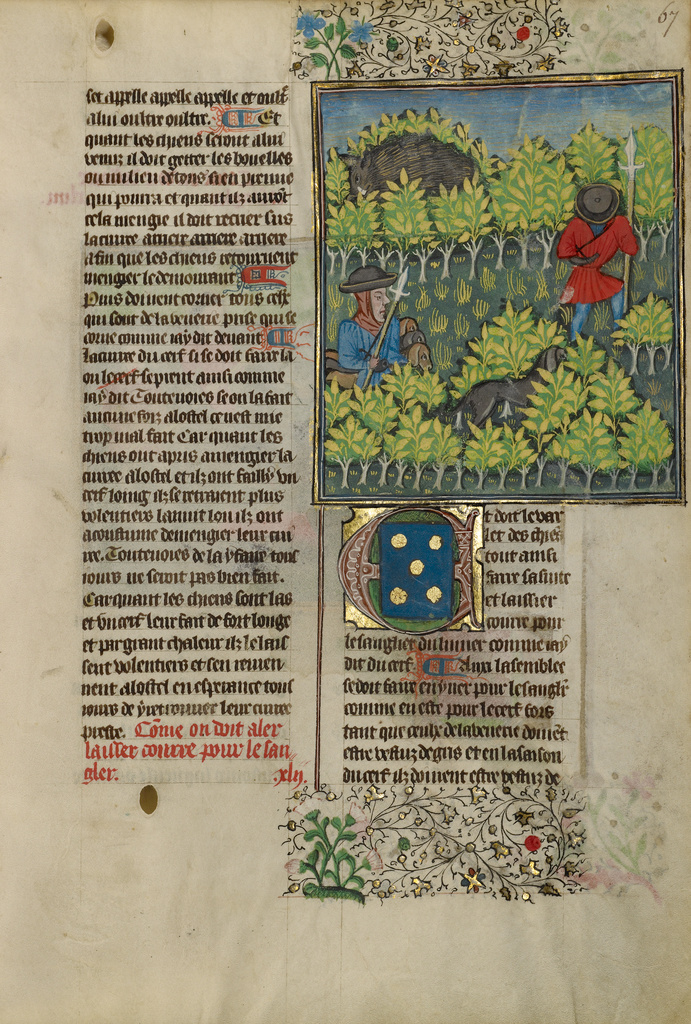 67
set appelle appelle appelle et oult
alui oultre oultre. Et
quant les chiens seront alui
venuz il doit getter les bouelles
ou milieu de tous si en preingne
qui pourra et quant ilz auront
cela mengie il doit recrier sus
la cuiree arriere arriere arriere
afin que les chiens retournent
mengier le demourant
Puis doivent corner tous ceulx
qui sont de la venerie prise qui se
corne comme jay dit devant
la cuiree du cerf si se doit faire la
ou le cerf se prent ainsi comme
jay dit Toutevoies se on la fait
aucune foiz alostel ce nest mie
trop mal fait Car quant les
chiens ont apris amengier la
cuiree alostel et ilz ont failly un
cerf loing ilz se retraient plus
volentiers la nuit lou ilz ont
acoustume de mengier leur cui
ree. Toutevoies de la y faire tous
jours ne seroit pas bien fait.
Car quant les chiens sont las
et un cerf leur fait de fort longe
et par grant chaleur ilz le lais
sent volentiers et sen revien
nent alostel en esperance tous
jours de y retrouver leur cuiree
preste. Come on doit aler
laisser courre pour le san
gler. xlij.
Et doit le var
let des chiens
tout ainsi
faire sa suite
et laissier
courre pour
le sanglier du limier comme jay
dit du cerf. Aux lasemblee
se doit faire en yver pour le sangler
comme en este pour le cerf fors
tant que ceulx de la venerie doivent
estre vestuz de gris et en la saison
du cerf ilz doivent estre vestuz de